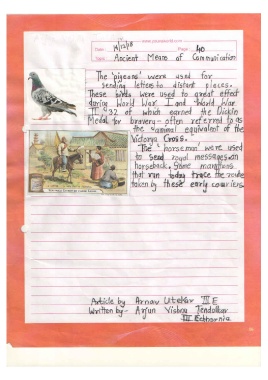 Date 14/12/18
Page 40
Topic Ancient Means of Communication
The 'pigeons' were used for
sending letters to distant places.
These birds were used to great effect
during World War I and World War
II. 32 of which earned the Dickin
Medal for bravery - often referred to as
the "animal equivalent of the
Victoria Cross.
The 'horseman' were used
to send royal messages on
horseback. Some marathons
that run today trace the route
taken by these early couriers.
Article by Arnav Utekar III E
Written by - Arjun Vishnu Tendolkar